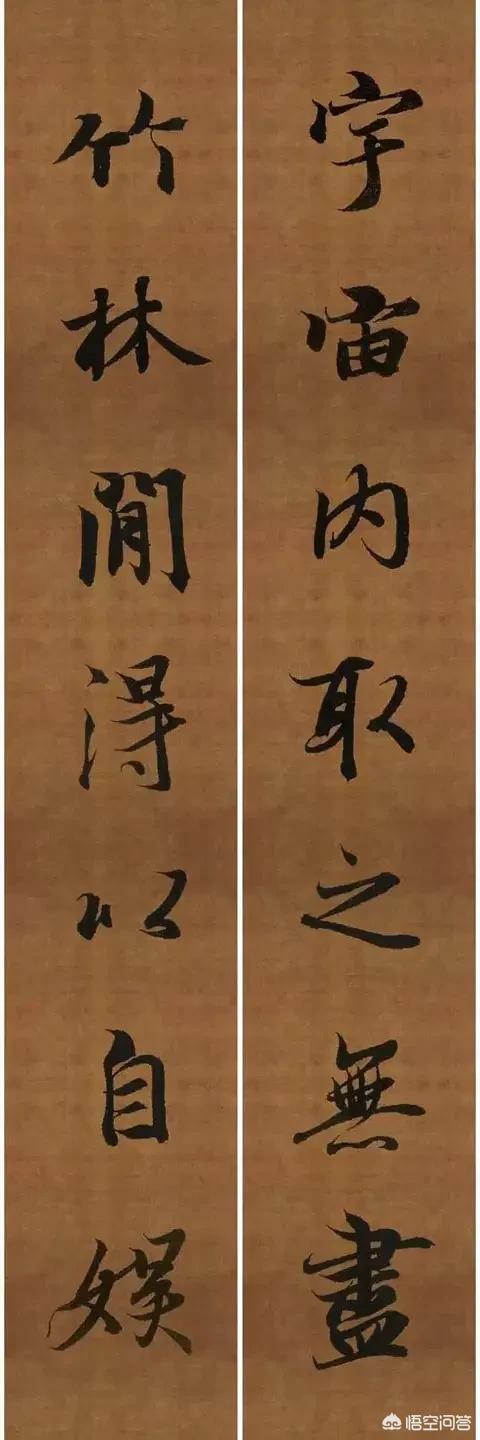 宇宙内取之無盡
竹林間得以自娱
悟空问答